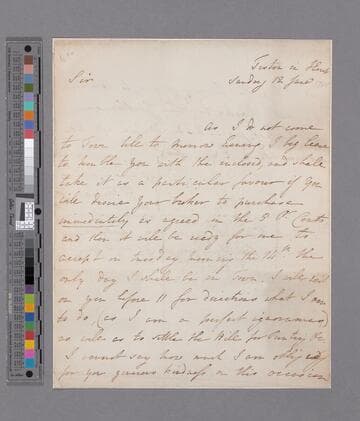 Sunday 12 June
Sir
as I do not come
to Town till to morrow Evening, I beg leave
to trouble you with the inclosed, and shall
take it as a particular favour if you
will desire your broker to purchase
immediately as agreed in the 3 P. Cents
and then it will be ready for me to
accept on tuesday morning the 14th the
only day I shall be in Town. I will call
on you before 11 for directions what I am
to do (as I am a perfect ignoramus)
as well as to settle the Bills for
I cannot say how much I am obliged
for your generous kindness on this occasion